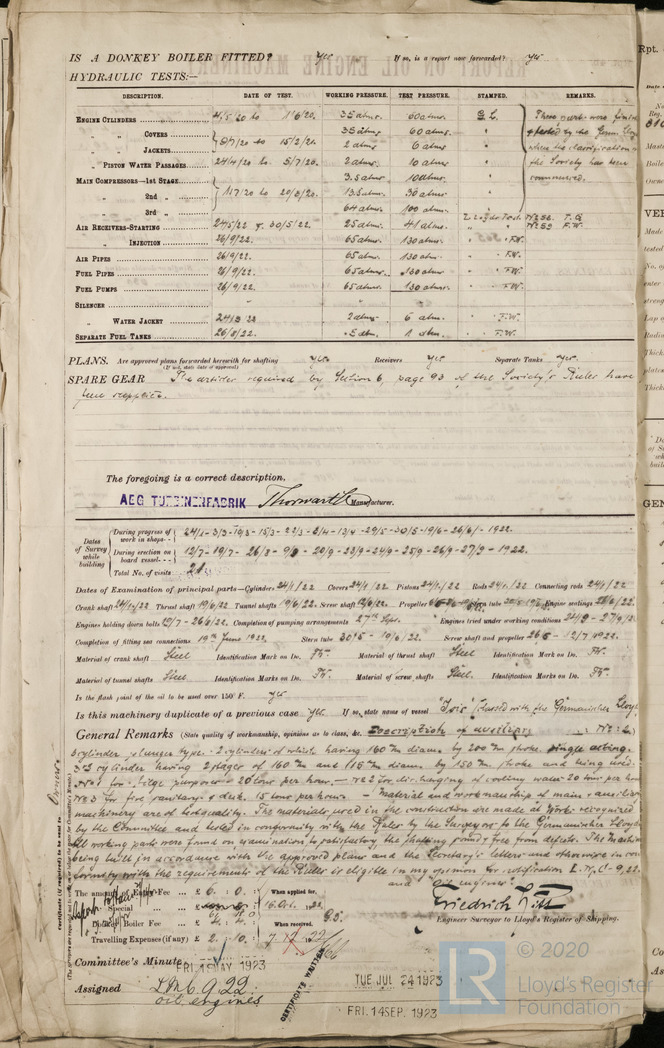 IS A DONKEY BOILER FITTED? Yes If so, is a report now forwarded? yes
HYDRAULIC TESTS:—
DESCRIPTION. DATE OF TEST. WORKING PRESSURE. TEST PRESSURE. STAMPED. REMARKS.
ENGINE CYLINDERS 4/5 20 to 1/6/20. 35 atmr. 60 atmr. G.L. These parts were
" " COVERS 35 atmr. 60 atmr. " by the Germ. Lloyd
" " JACKETS 5/7/20 to 15/2/21. 2 atmr. 6 atmr. " when the classification
" PISTON WATER PASSAGES 24/4/20 to 5/7/20. 2 atmr. 10 atmr. " the Society has been
MAIN COMPRESSORS—1st STAGE 3.5 atmr. 10 atmr. "
" " 2nd " 1/17/20 to 20/8/20. 13.5 atmr. 30 atmr. "
" " 3rd " 64 atmr. 100 atmr. "
AIR RECEIVERS-STARTING 24/5/22 & 30/5/22. 25 atmr. 41 atmr. Lloyds Test. No 58. T.G.
" " INJECTION 26/9/22. 65 atmr. 130 atmr. No 59 F.W.
AIR PIPES 26/9/22. 65 atmr. 130 atmr. " F.W.
FUEL PIPES 26/9/22. 65 atmr. 130 atmr. " F.W.
FUEL PUMPS 26/9/22. 65 atmr. 130 atmr. " F.W.
SILENCER
" WATER JACKET 2 atmr. 6 atm. " F.W.
SEPARATE FUEL TANKS 26/8/22. .5 atm. 1 atm. F.W.
PLANS. Are approved plans forwarded herewith for shafting yes Receivers yes Separate Tanks yes.
(If not, state date of approval)
SPARE GEAR The articles required by Section 6, page 93 of the Society's Rules have
been supplied.
The foregoing is a correct description,
AEG TURBINENFABRIK Manufacturer.
Dates of Survey while building
During progress of work in shops-- 24/1- 3/3- 10/3- 15/3- 22/3- 3/4- 13/4- 29/5- 30/5- 19/6- 26/6/- 1922.
During erection on board vessel--- 12/7- 19/7- 26/8- 22/9- 23/9- 24/9- 25/9- 26/9- 27/9- 1922.
Total No. of visits 21
Dates of Examination of principal parts—Cylinders 24/1/22 Covers 24/1/22 Pistons 24/1/22 Rods 24/1/22 Connecting rods 24/1/22
Crank shaft 24/1/22 Thrust shaft 19/6/22 Tunnel shafts 19/6/22. Screw shaft 19/6/22. Propeller Stern tube Engine seatings 26/6/22.
Engines holding down bolts 19/7- 26/6/22. Completion of pumping arrangements 27th Sept. Engines tried under working conditions
Completion of fitting sea connections 19th June 1922. Stern tube 30/5 - 19/6/22. Screw shaft and propeller 26/5 - 12/7/1922.
Material of crank shaft Steel Identification Mark on Do. Material of thrust shaft Steel Identification Mark on Do.
Material of tunnel shafts Steel Identification Marks on Do. Material of screw shafts Steel. Identification Marks on Do.
Is the flash point of the oil to be used over 150° F. yes
Is this machinery duplicate of a previous case yes If so, state name of vessel "Isis" (classed with the Germanischer Lloyd)
General Remarks (State quality of workmanship, opinions as to class, &c. Description of auxiliary
3 cylinder plunger type. 2 cylinders of which having 160 mm diam. by 200 mm stroke, single acting.
3rd cylinder having 2 stages of 160 mm and 115 mm diam. by 150 mm stroke and being used.
No 1 for bilge purposes - 20 tons per hour. - No 2 for discharging of cooling water- 20 tons per hour
No 3 for fire sanitary & deck. 15 tons per hour - Material and workmanship of main & auxiliary
machinery are of best quality. The materials used in the construction are made at Works recognized
by the Committee and tested in conformity with the Rules by the Surveyors to the Germanischer Lloyd.
All working parts were found on examination, to satisfactory the shafting sound & free from defects. The Machinery
being built in accordance with the approved plans and the Secretary's letters and otherwise in con
formity with the requirements of the Rules is eligible in my opinion for notification L.M.C.- 9,22.
and "oil engines".
The amount of Entry Fee £ 6 : 0 : When applied for,
Special 16. Oct. 22
Donkey Boiler Fee £ When received,
Travelling Expenses (if any) £ 2 : 10 :
Engineer Surveyor to Lloyd's Register of Shipping.
Committee's Minute FRI. MAY 1923
TUE JUL 24 1923
Assigned L.M.C 9.22.
oil engines
FRI. 14 SEP. 1923
CERTIFICATE WRITTEN
Certificate (if required) to be sent to
LR
© 2020
Lloyd's Register
Foundation